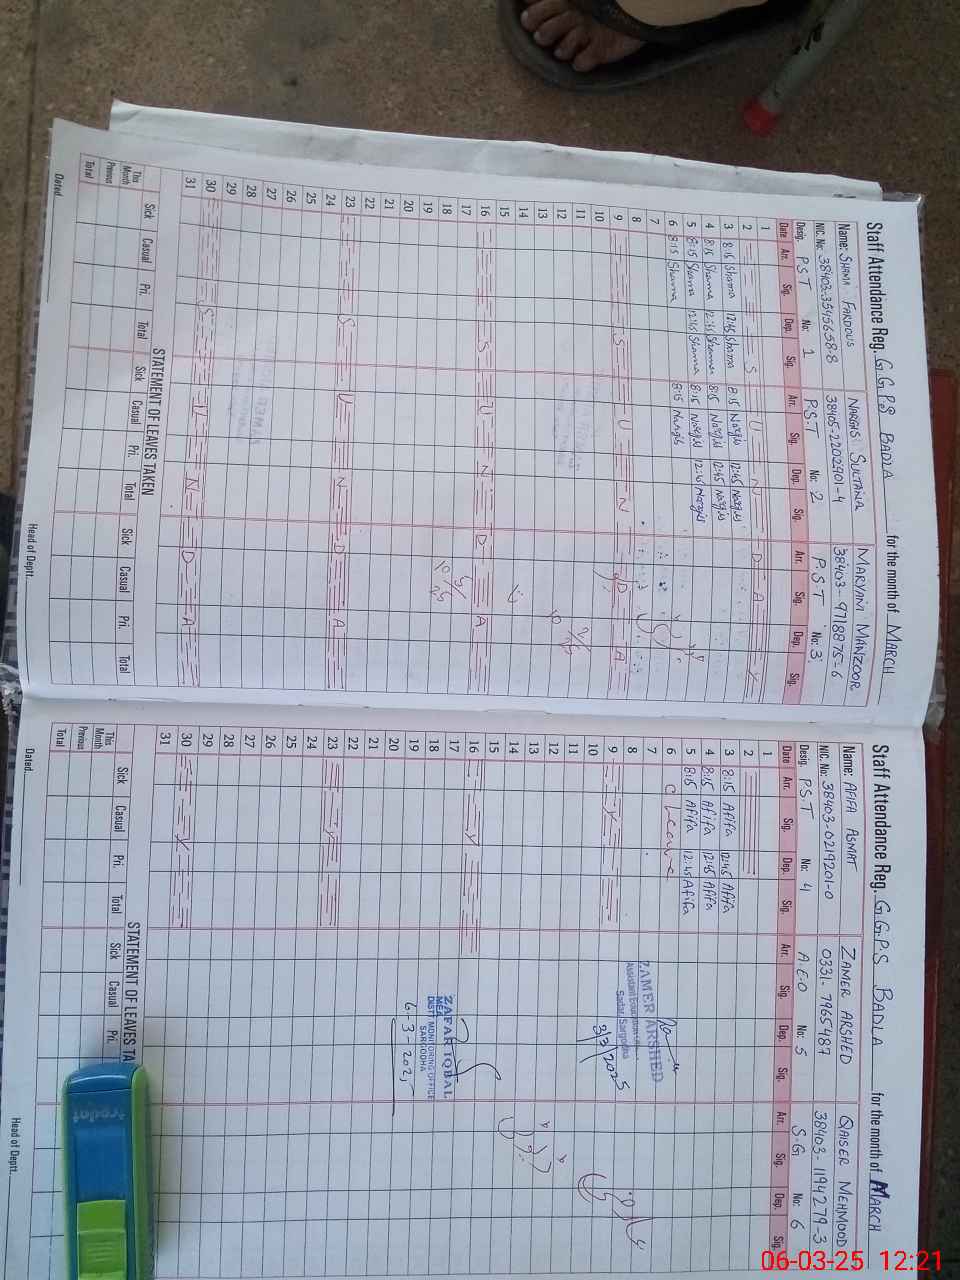 Staff Attendance Reg. G.G.P.S BADLA for the month of MARCH
Name: SHAMA FARDOUS NARGIS SULTANA MARYAM MANZOOR
NIC. No: 38403-3545658-8 38405-2202901-4 38403-9718875-6
Desig. P.S.T No: 1 P.S.T No: 2 P.S.T No: 3
Date Arr. Sig. Dep. Sig. Arr. Sig. Dep. Sig. Arr. Sig. Dep. Sig.
1
2 S U N D A Y
3 8:15 Shama 12:45 Shama 8:15 Nargis 12:45 Nargis
4 8:15 Shama 12:45 Shama 8:15 Nargis 12:45 Nargis
5 8:15 Shama 12:45 Shama 8:15 Nargis 12:45 Nargis
6 8:15 Shama 8:15 Nargis
7
8
9 S U N D A
10
11
12
13
14
15
16 S U N D A
17
18
19
20
21
22
23 S U N D A
24
25
26
27
28
29
30 S U N D A
31
STATEMENT OF LEAVES TAKEN
Sick Casual Pri. Total Sick Casual Pri. Total Sick Casual Pri. Total
This Month
Previous
Total
Dated. Head of Deptt.
Staff Attendance Reg. G.G.P.S BADLA for the month of MARCH
Name: AFIFA ASMAT ZAMER ARSHED QAISER MEHMOOD
NIC. No: 38403-0219201-0 0331-7965487 38403-1194279-3
Desig. P.S.T No: 4 A.E.O No: 5 S.G No: 6
Date Arr. Sig. Dep. Sig. Arr. Sig. Dep. Sig. Arr. Sig. Dep. Sig.
1
2
3 8:15 Afifa 12:45 Afifa
4 8:15 Afifa 12:45 Afifa
5 8:15 Afifa 12:45 Afifa
6 C Leave
7
8
9 Y
10
11
12
13
14
15
16 Y
17
18
19
20
21
22
23 Y
24
25
26
27
28
29
30 Y
31
ZAMER ARSHED
Assistant Education
Sadar, Sargodha
3/3/2025
ZAFAR IQBAL
MEA
DISTT MONITORING OFFICE
SARGODHA
6-3-202
STATEMENT OF LEAVES TA
Sick Casual Pri. Total Sick Casual Pri.
This Month
Previous
Total
Dated. Head of Deptt.
trodat
06-03-25 12:21